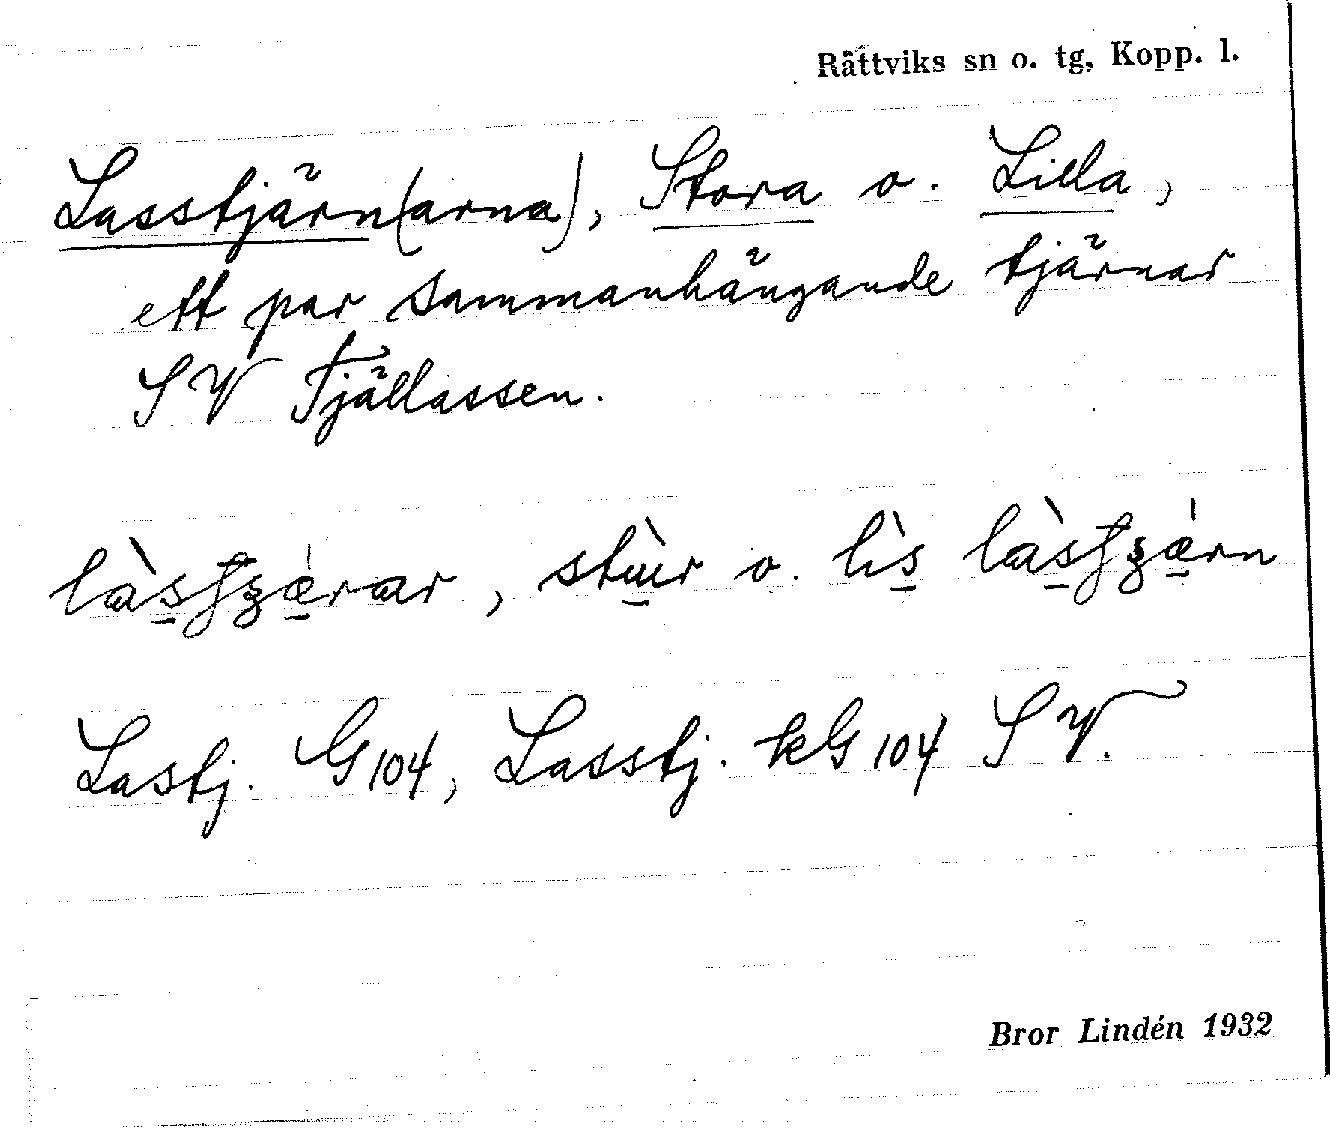 Rättviks sn o. tg, Kopp. l.
Lasstjärn(arna), Stora o. Lilla,
ett par sammanhängande tjärnar
SV Fjällassen.
stùr o. lìs
Lastj. G 104, Lasstj. kG 104 SV.
Bror Lindén 1932